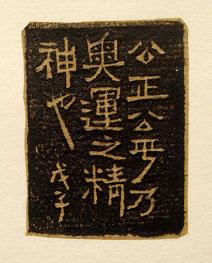 公正公平乃
奧運之精
神也
戊子